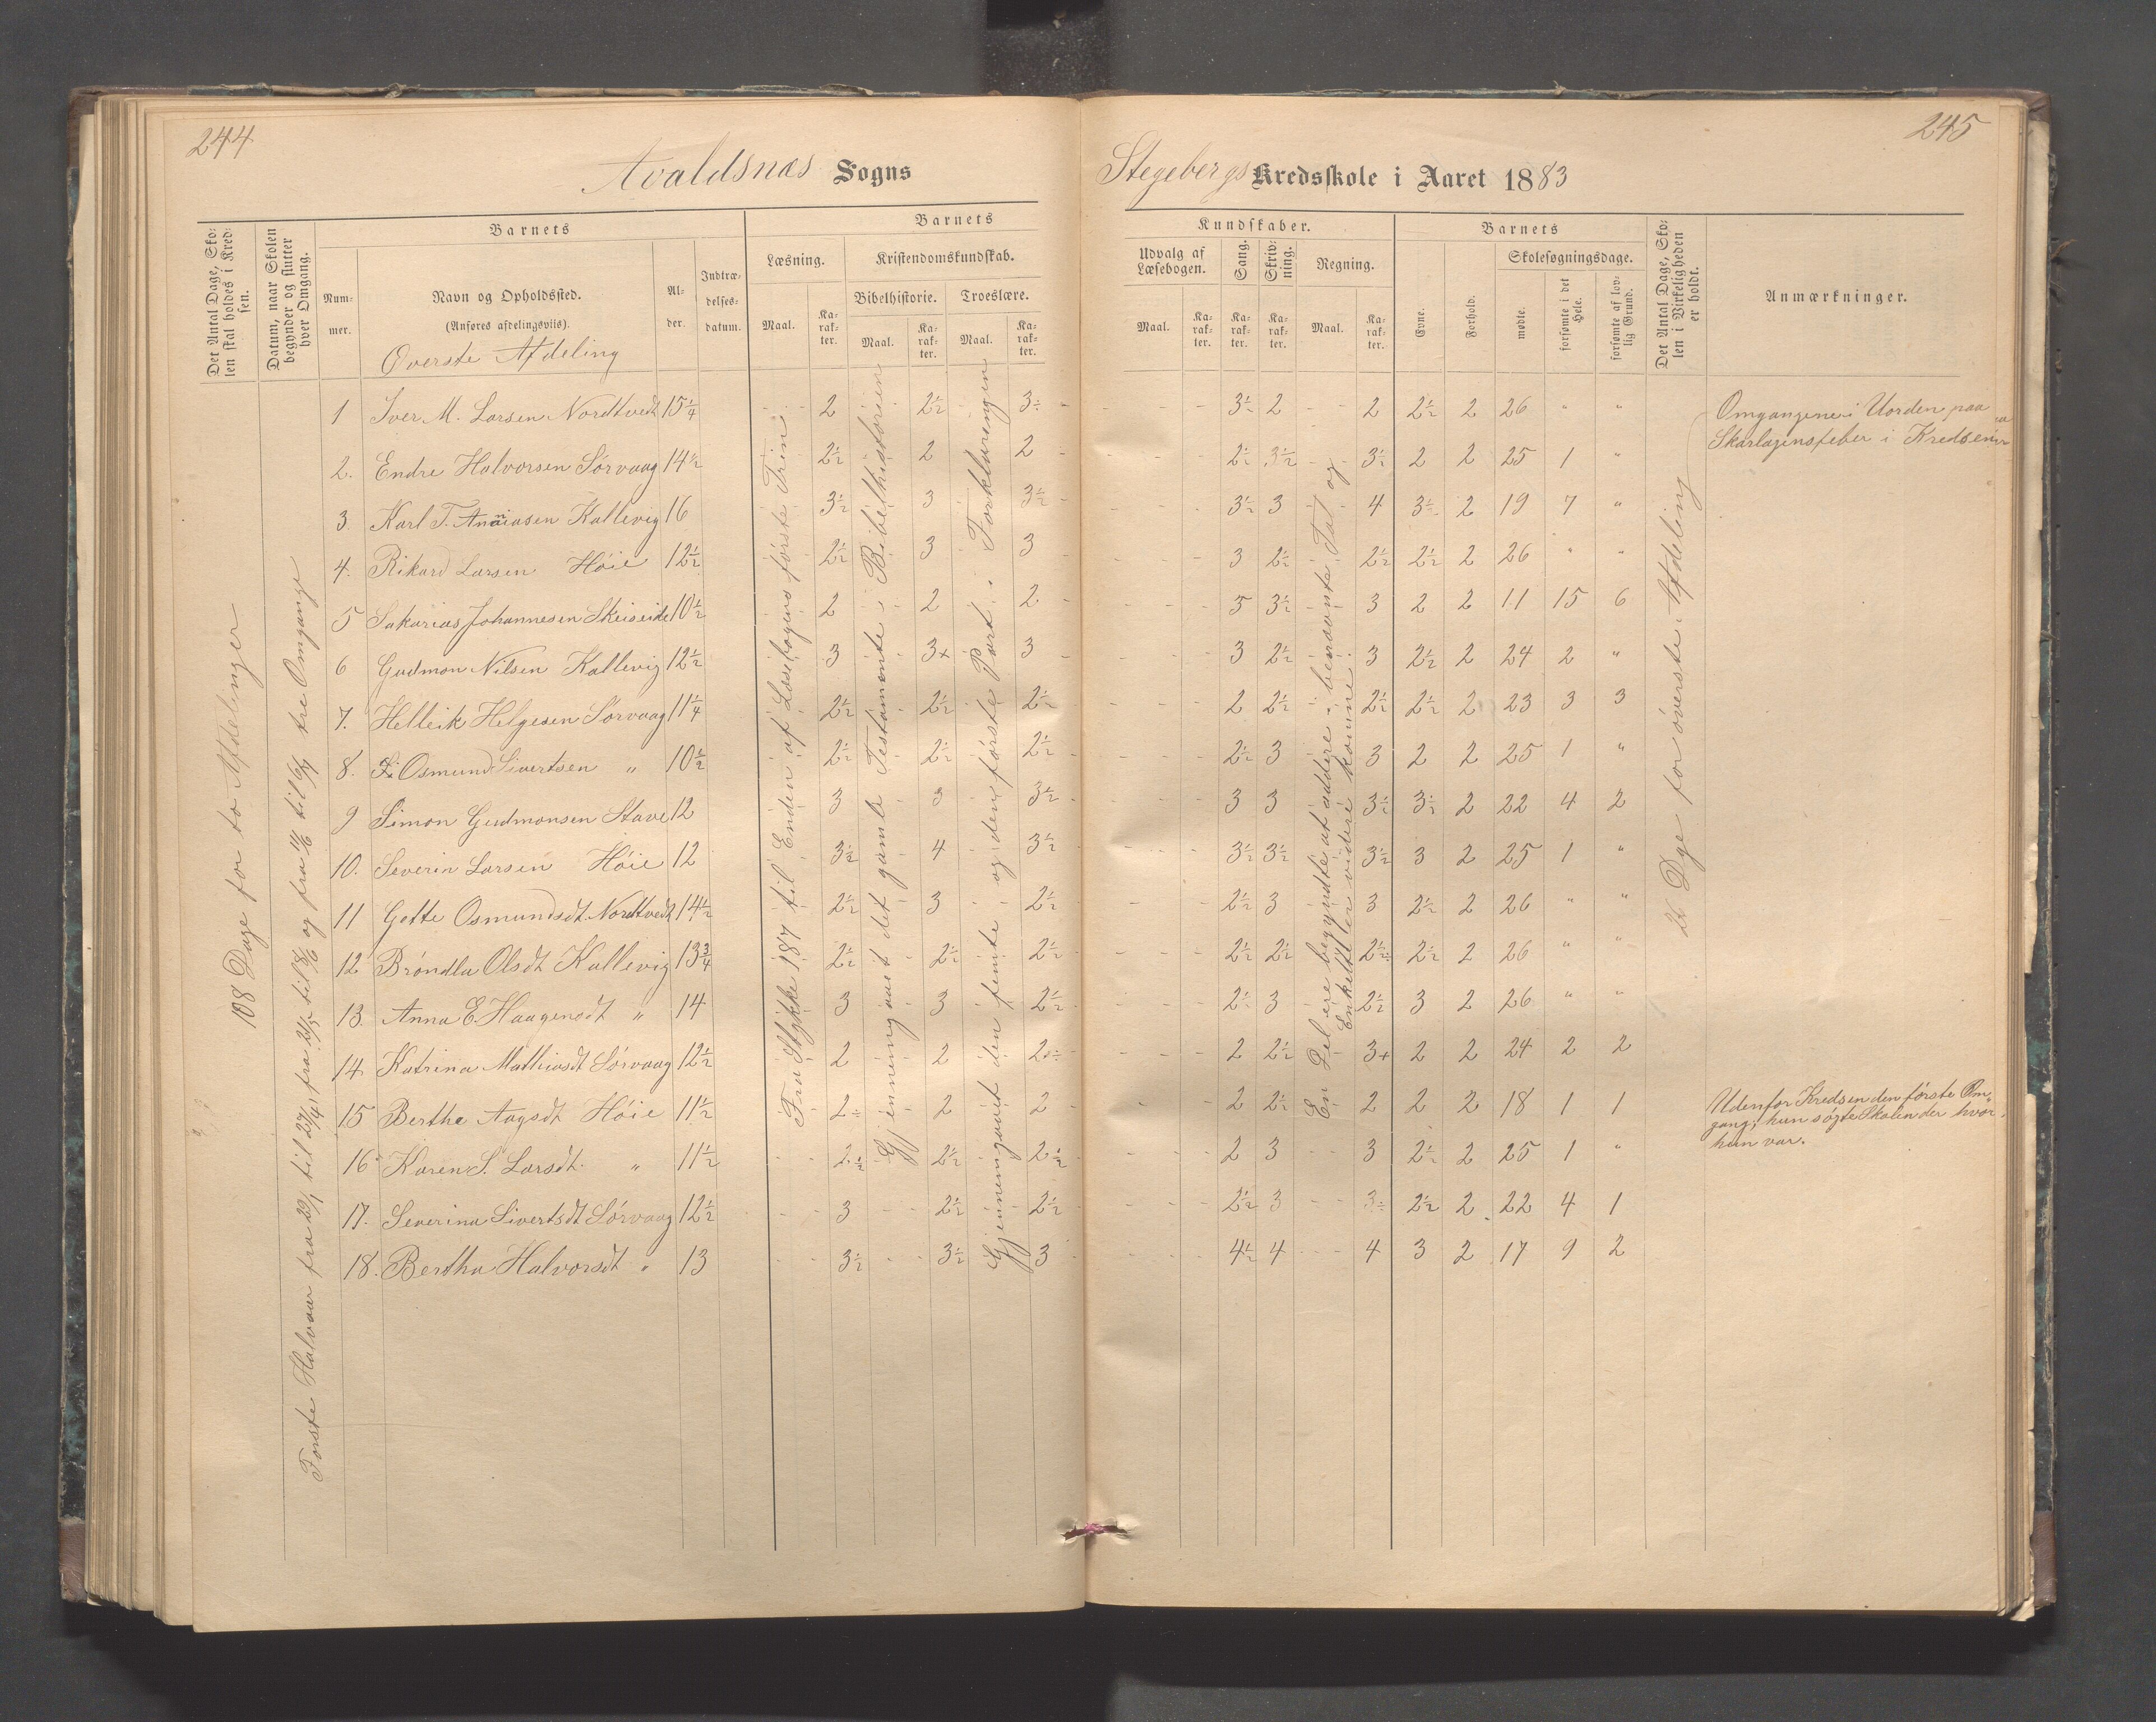 244
Avaldsnæs Sogns
Det Antal Dage, Sko-
len skal holdes i Kred-
sen.
Datum, naar Skolen
begynder og slutter
hver Omgang.
Barnets
Num-
mer.
Navn og Opholdssted.
(Anføres afdelingsviis).
Al-
der.
Indtræ-
delses-
datum.
Barnets
Læsning.
Kristendomskundskab.
Maal.
Ka-
rak-
ter.
Bibelhistorie.
Troeslære.
Maal.
Ka-
rak-
ter.
Maal.
Ka-
rak-
ter.
Øverste Afdeling
108 Dage for to Afdelinger
Første Halvaar fra 29/1 til 27/4, fra 21/5 til 8/6 og fra 11/6 til 6/7 tre Omgange
Fra Stykke 187 til Enden af Læsebogens første Trin
Gjennemgaaet det gamle Testamente i Bibelhistorien
Gjennemgaaet den femte og den første Part i Forklaringen
1 Iver M. Larsen Nordtvedt 15 1/4 2 2 1/2 3÷
2. Endre Halvorsen Sørvaag 14 1/2 2 1/2 2 2
3. Karl T. Ananiasen Kallevig 16 3 1/2 3 3 1/2
4. Rikard Larsen Høie 12 1/2 2 1/2 3 3
5 Sakarias Johannesen Skeiseide 10 1/2 2 2 2
6 Gudmon Nilsen Kallevig 12 1/2 3 3+ 3
7. Helleik Helgesen Sørvaag 11 1/4 2 1/2 2 1/2 2 1/2
8. Osmund Sivertsen " 10 1/2 2 1/2 2 1/2 2 1/2
9 Simon Gudmonsen Stave 12 3 3 3 1/2
10. Severin Larsen Høie 12 3 1/2 4 3 1/2
11 Gette Osmundsdt Nordtvedt 14 1/2 2 1/2 3 2 1/2
12 Brøndla Olsdt Kallevig 13 3/4 2 1/2 2 1/2 2 1/2
13. Anna E. Haagensdt " 14 3 3 2 1/2
14 Katrina Mathiasdt Sørvaag 12 1/2 2 2 2÷
15 Berthe Aagsdt Høie 11 1/2 2÷ 2 2
16 Karen S. Larsdt. " 11 1/2 2 1/2 2 1/2 2 1/2
17. Severina Sivertsdt Sørvaag 12 1/2 3 2 1/2 2 1/2
18. Bertha Halvorsdt " 13 3 1/2 3 1/2 3
245
Stegebergs Kredsskole i Aaret 1883
Kundskaber.
Udvalg af
Læsebogen.
Maal.
Ka-
rak-
ter.
Sang.
Ka-
rak-
ter.
Skriv-
ning.
Ka-
rak-
ter.
Regning.
Maal.
Ka-
rak-
ter.
Barnets
Evne.
Forhold.
Skolesøgningsdage.
mødte.
forsømte i det
Hele.
forsømte af lov-
lig Grund.
Det Antal Dage, Sko-
len i Virkeligheden
er holdt.
Anmærkninger.
En Del ere begyndte at addere i benævnte Tal og
Enkelte er videre komne.
26 Dge for øverste Afdeling
3÷ 2 2 2 1/2 2 26 " "
2÷ 3 1/2 3 1/2 2 2 25 1 "
3÷ 3 4 3÷ 2 19 7 "
3 2÷ 2 1/2 2 1/2 2 26 " "
3 3÷ 3 2 2 11 15 6
3 2 1/2 3 2 1/2 2 24 2 "
2 2 1/2 2 1/2 2 1/2 2 23 3 3
2÷ 3 3 2 2 25 1 "
3 3 3÷ 3÷ 2 22 4 2
3 1/2 3 1/2 3 1/2 3 2 25 1 "
2 1/2 3 3 2 1/2 2 26 " "
2 1/2 2 1/2 2 1/2 2 1/2 2 26 " "
2÷ 3 2 1/2 3 2 26 " "
2 2 1/2 3+ 2 2 24 2 2
2 2 1/2 2 2 2 18 1 1
2 3 3 2÷ 2 25 1 "
2 1/2 3 3÷ 2 1/2 2 22 4 1
4 1/2 4 4 3 2 17 9 2
Omgangene i Uorden paa
Skarlagensfeber i Kredsen
Udenfor Kredsen den første Om-
gang; hun søgte Skolen der hvor
hun var.